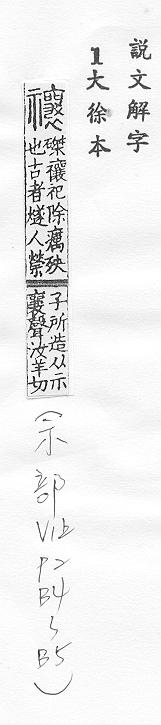 説文解字
1大徐本
禳 磔禳祀除癘殃也古者燧人禜子所造从示襄聲汝羊切
(示部
V1b
P2
B4
B5)